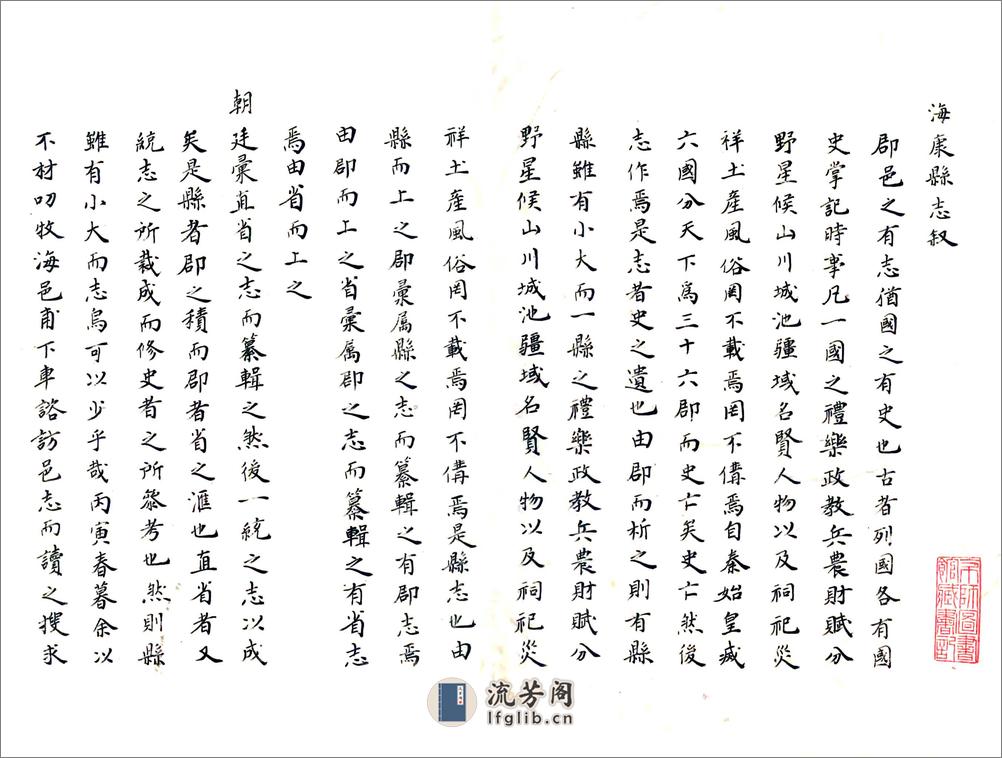 海康縣志叙
郡邑之有志猶國之有史也古者列國各有國
史掌記時事凡一國之禮樂政教兵農財賦分
野星候山川城池疆域名賢人物以及祠祀災
祥土産風俗罔不載焉罔不偹焉自秦始皇滅
六國分天下爲三十六郡而史亡矣史亡然後
志作焉是志者史之遺也由郡而析之則有縣
縣雖有小大而一縣之禮樂政教兵農財賦分
野星候山川城池疆域名賢人物以及祠祀災
祥土産風俗罔不載焉罔不偹焉是縣志也由
縣而上之郡彙属縣之志而纂輯之有郡志焉
由郡而上之省彙属郡之志而纂輯之有省志
焉由省而上之
朝廷彙直省之志而纂輯之然後一統之志以成
矣是縣者郡之積而郡者省之滙也直省者又
統志之所裁成而修史者之所叅考也然則縣
雖有小大而志烏可以少乎哉丙寅春暮余以
不材叨牧海邑甫下車諮訪邑志而讀之搜求
京師圖書
館藏書記
流芳阁
lfglib.cn